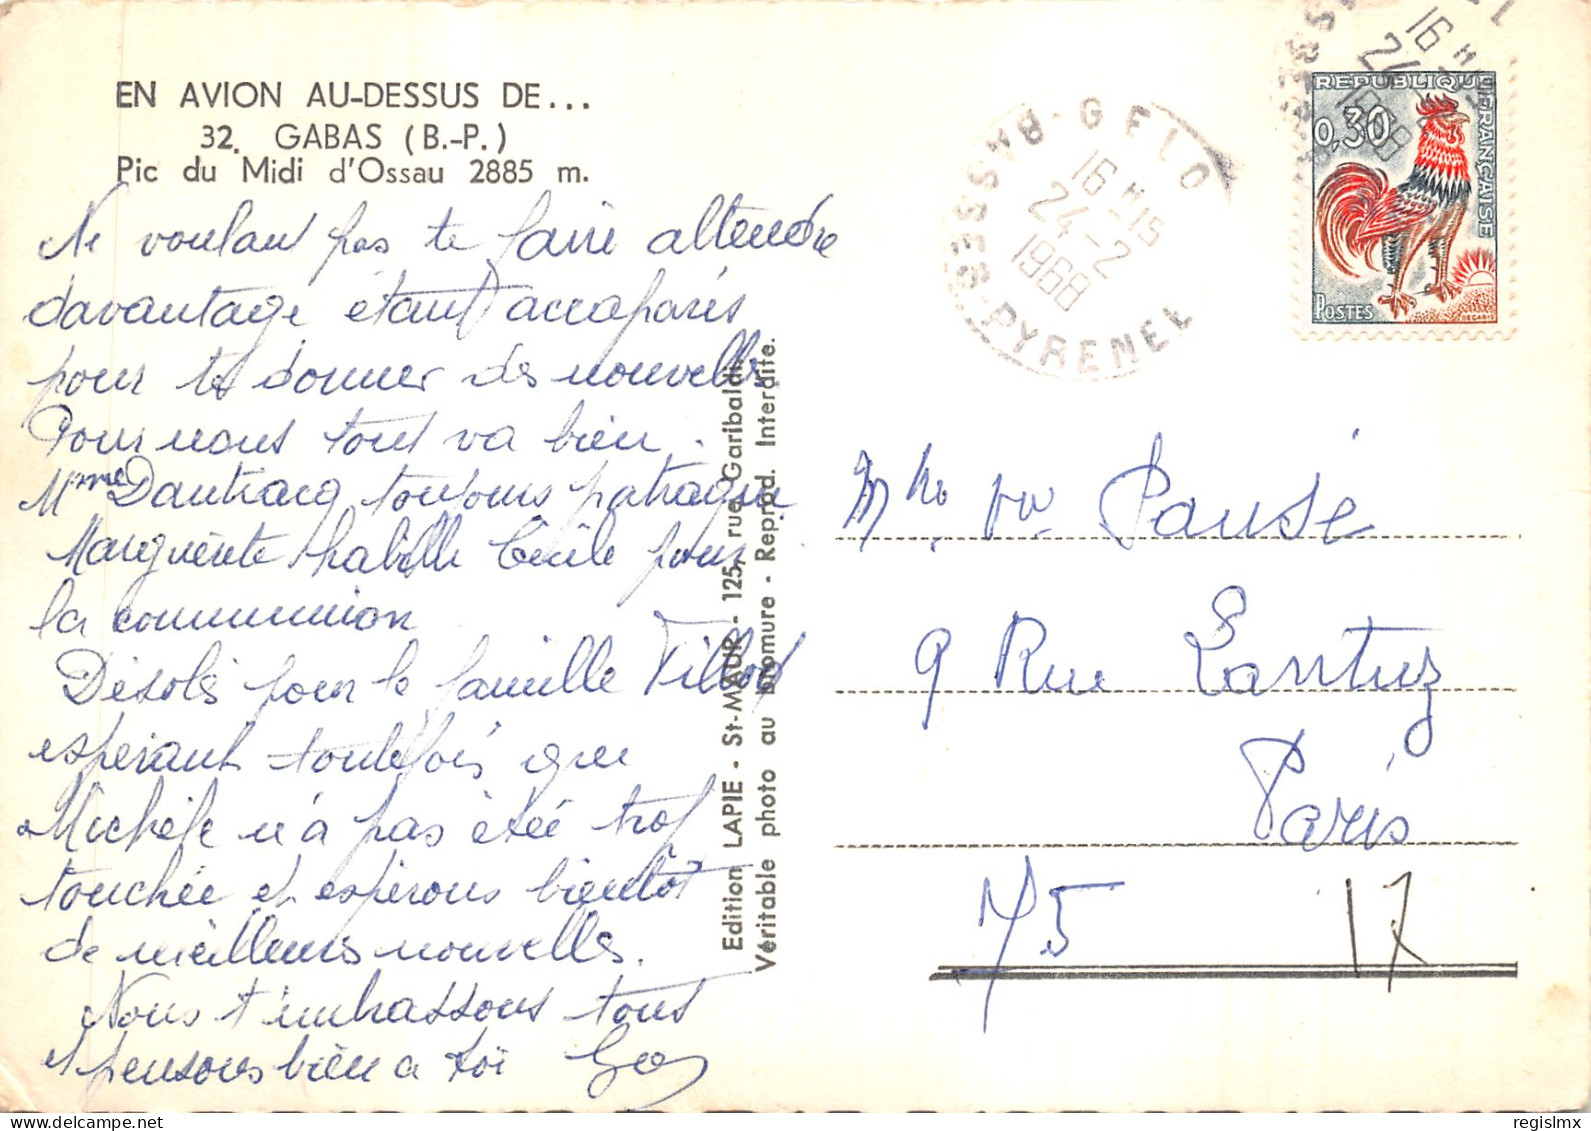 EN AVION AU-DESSUS DE...
32. GABAS (B.-P.)
Pic du Midi d'Ossau 2885 m.
Ne voulant pas te faire attendre
davantage étant accaparés
pour te donner des nouvelles
Pour nous tout va bien.
Mme toujours patraque
Marguerite habille Cécile pour
la communion
Désolés pour la famille Fillod
espérant toutefois que
Michèle n'a pas été trop
touchée et espérons bientôt
de meilleures nouvelles.
Nous t'embrassons tous
et pensons bien a toi
Edition LAPIE - St-MAUR - 125, rue Garibaldi
Véritable photo au bromure - Reprod. Interdite.
GELO
BASSES-PYRENEES
16 H 15
24-2
1968
16 H
24
1968
REPUBLIQUE FRANÇAISE
0,30
POSTES
DECARIS
Pausé
9 Rue Lantiez
Paris
75 17
delcampe.net
regislmx